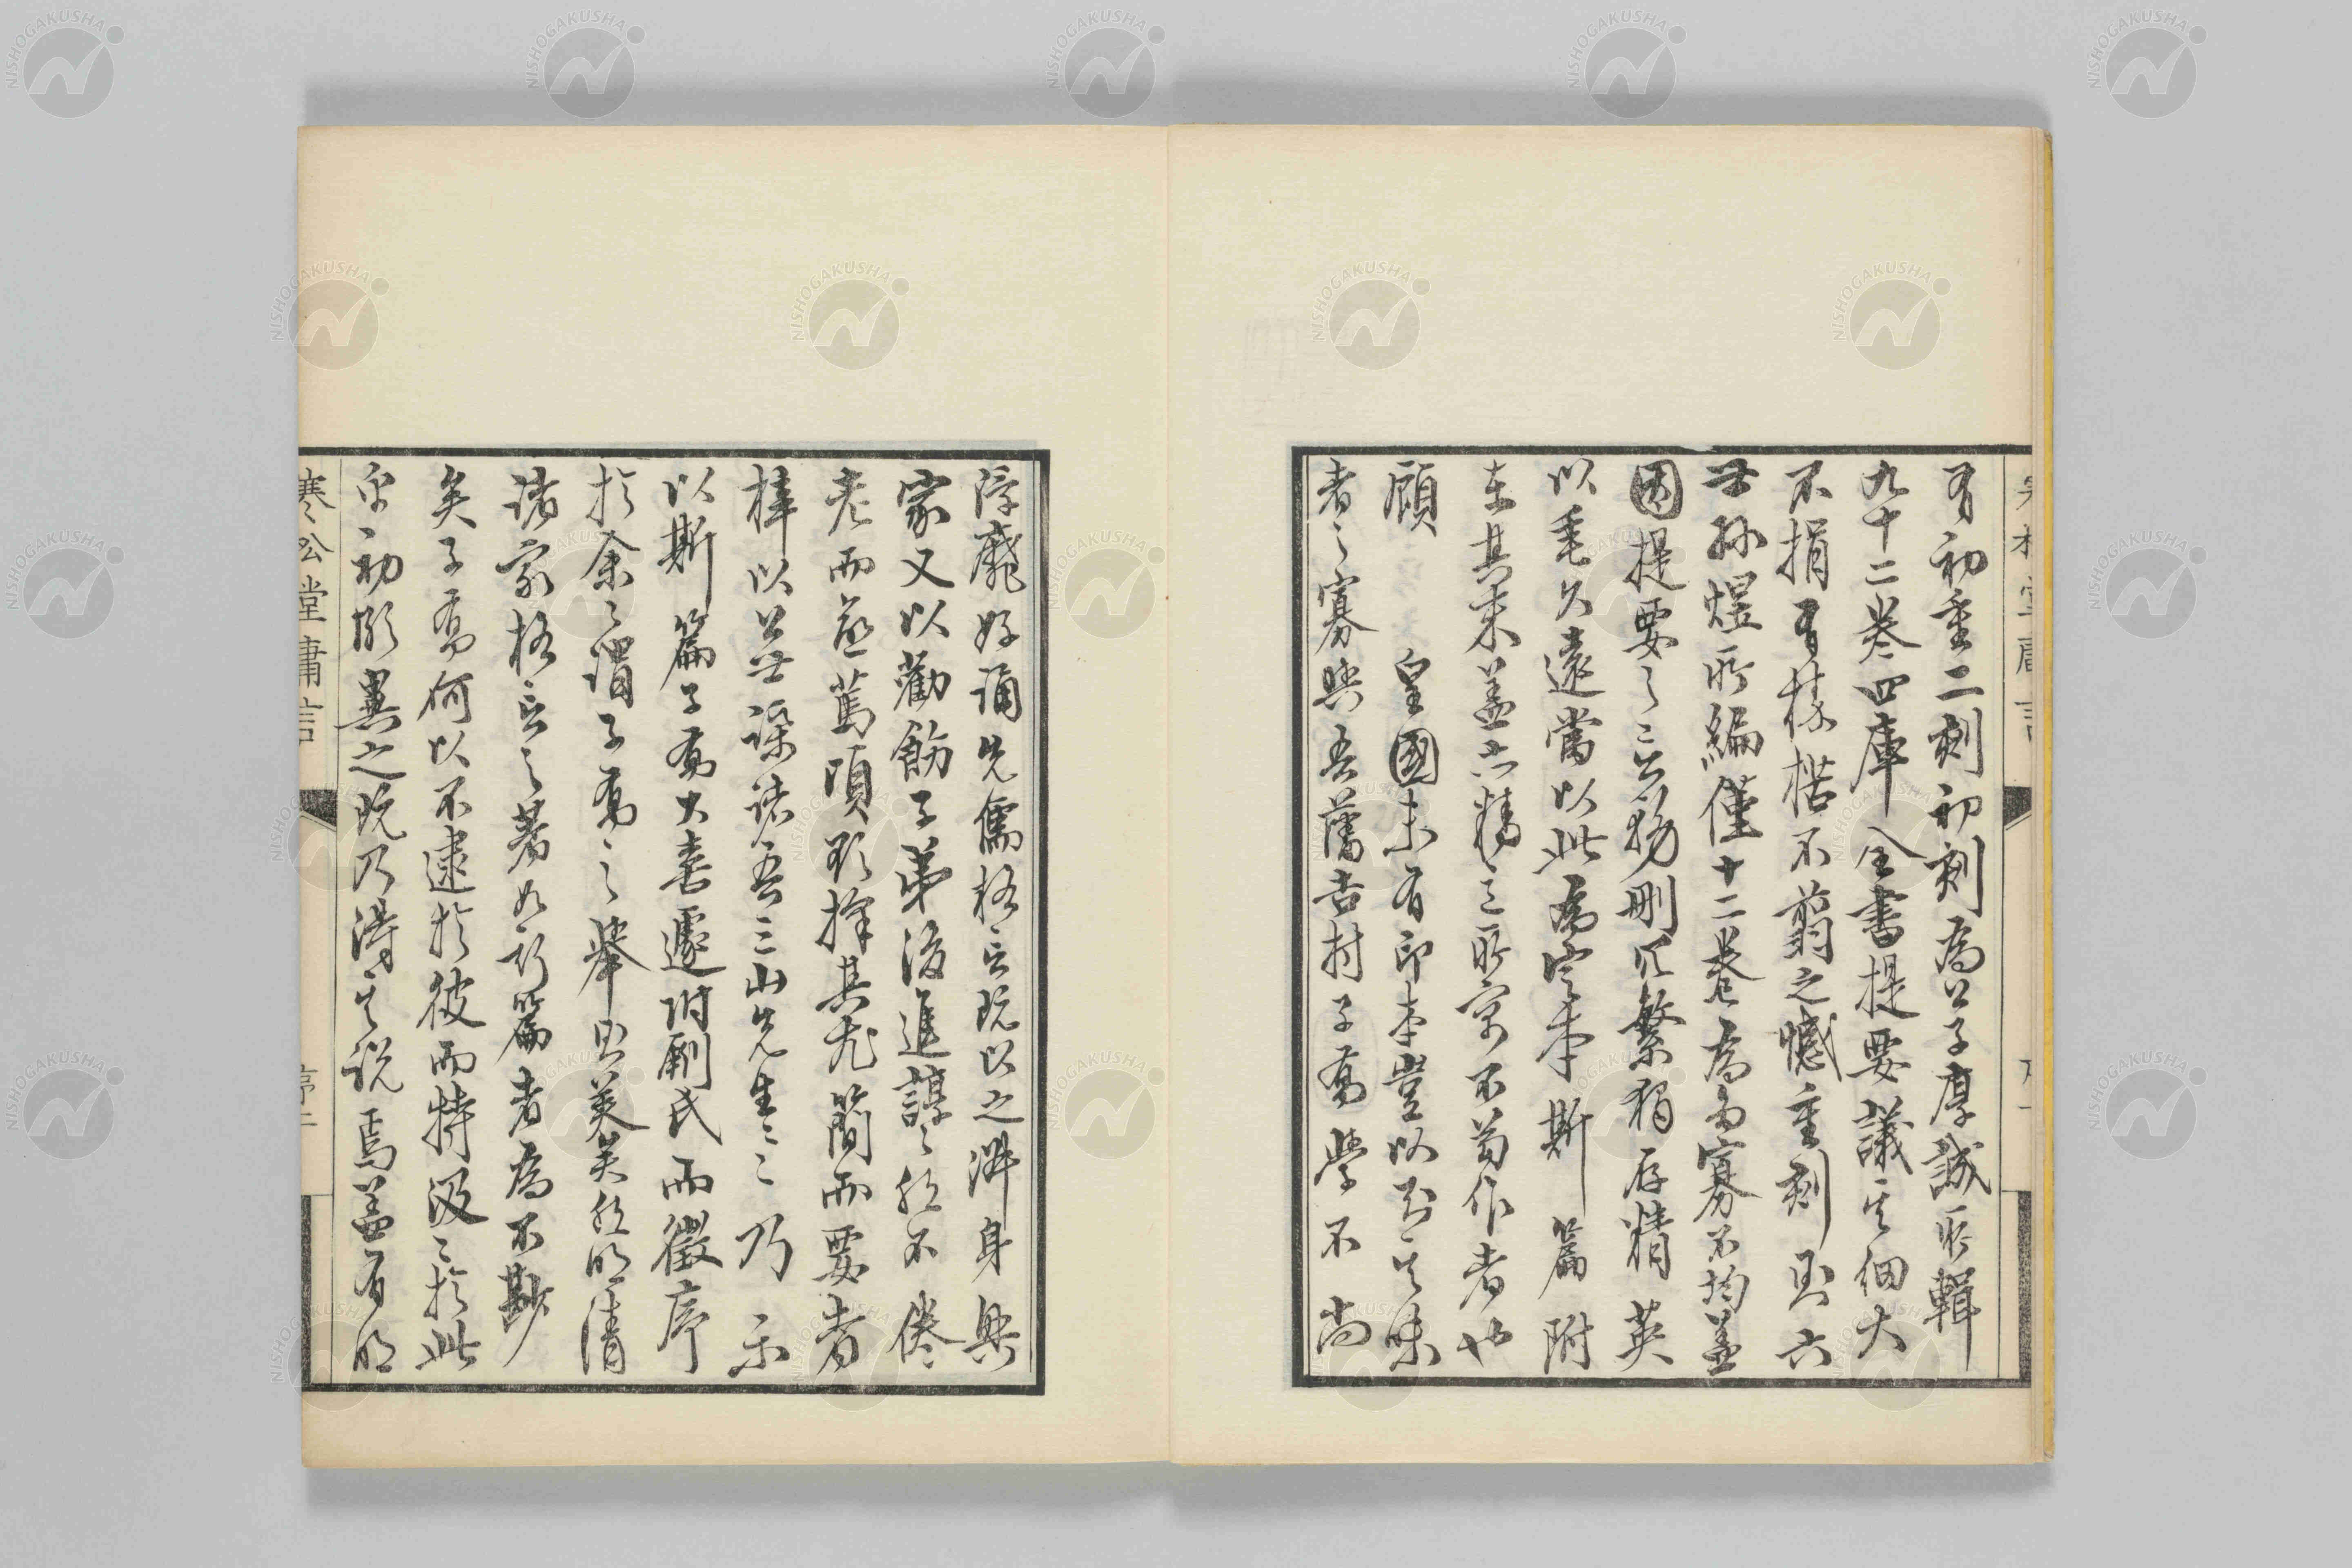 有初重二刻初刻為公子厚誠所輯
九十二卷四庫全書提要議其細大
不捐有榛楛不翦之憾重刻玉六
世孫煜所編僅十二卷為多寡不均蓋
因提要之言務刪冗繁獨存精英
以垂久遠當以此為定本斯篇附
在其末蓋亦精之所寓不苟作者也
顧皇國未有印本豈以知其味
者之寡與吾舊吉村子高學不尚
浮靡好誦先儒格言既以之淑身與
家又以勸飭子弟後進諄諄然不倦
老而益篤頃抄擇其尤簡而要者
梓以公世謀諸吾三山先生先生乃示
以斯篇子高大喜遽附剞氏而徵序
於余余謂子高之舉固美矣然明清
諸家格言之著如斯篇者為不尠
矣子高何以不逮於彼而特汲汲於此
乎初頗異之既乃得其說焉蓋有明
寒松堂庸言 序二